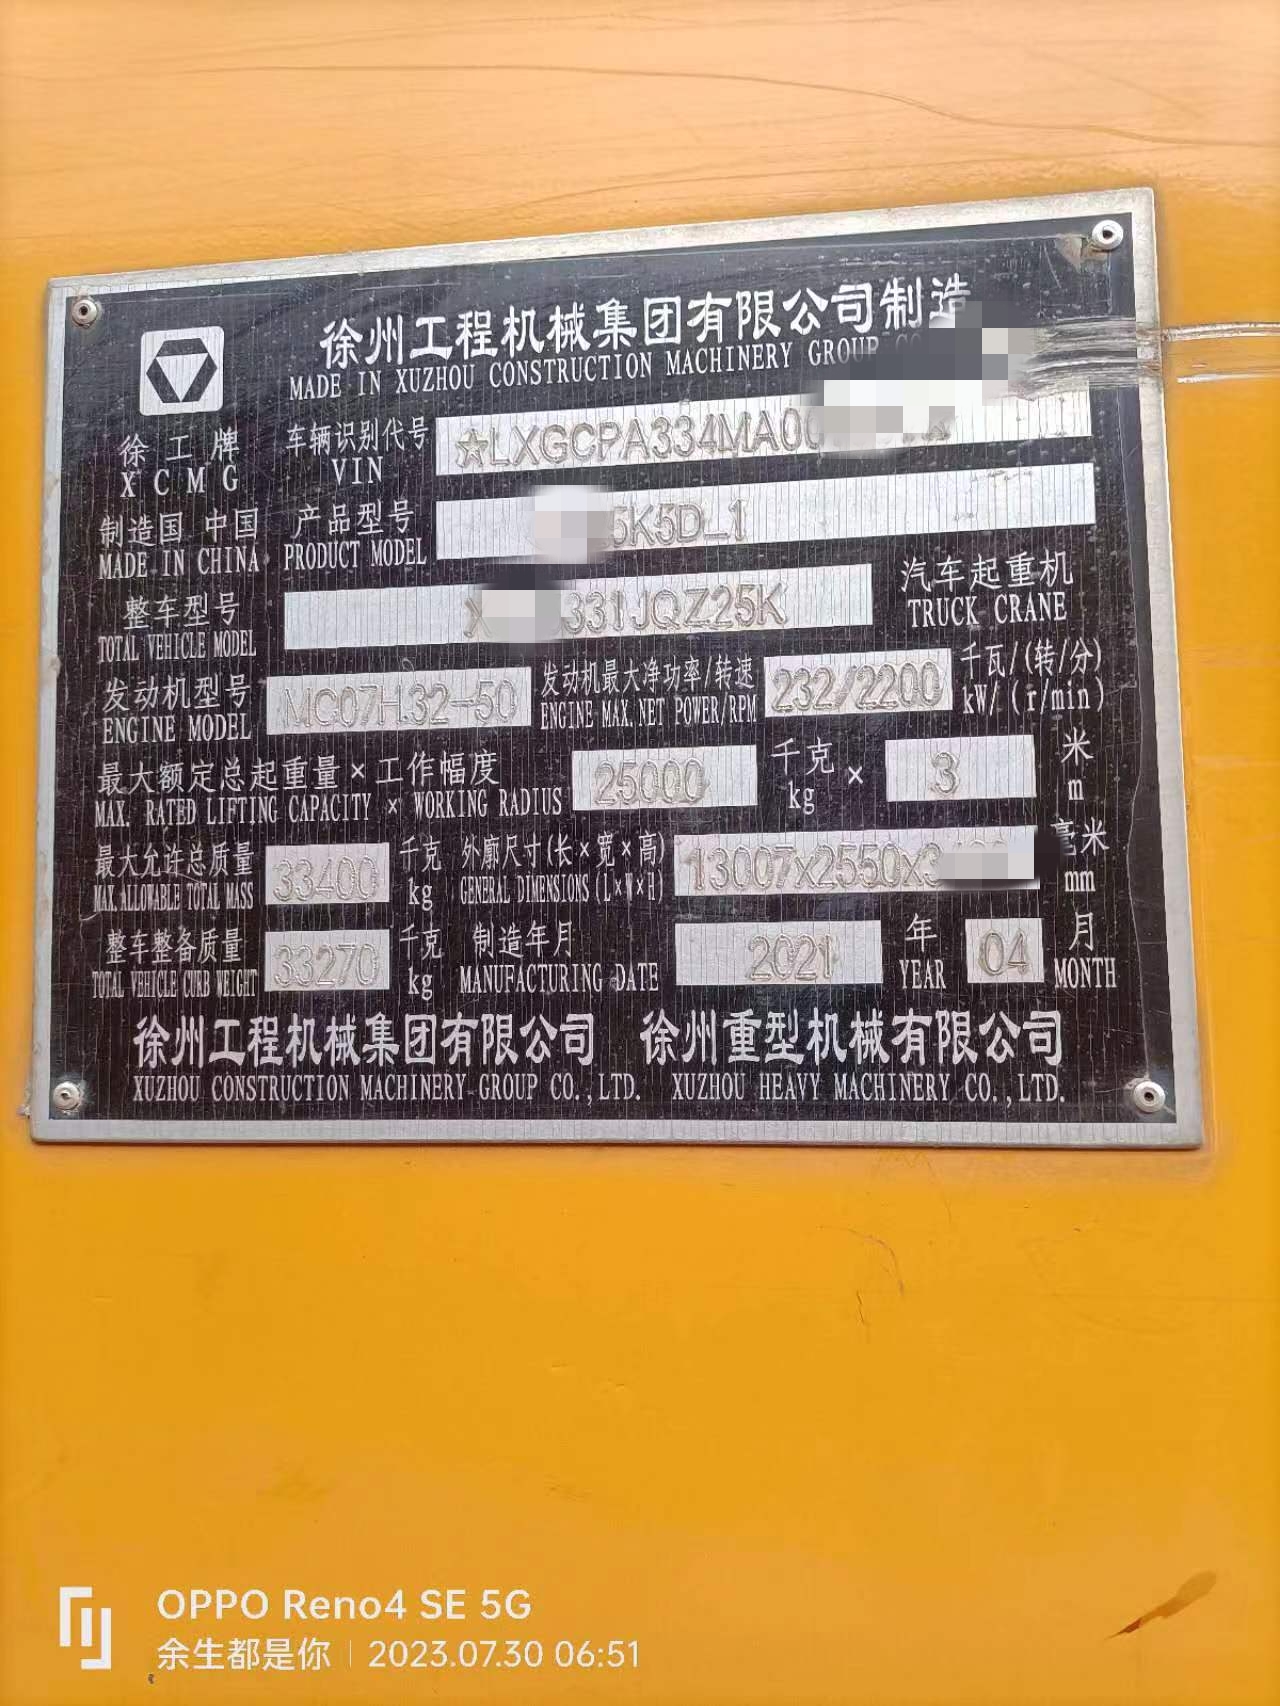 徐州工程机械集团有限公司制造
MADE IN XUZHOU CONSTRUCTION MACHINERY GROUP
徐工牌
XCMG
车辆识别代号
VIN
☆LXGCPA334MA00
制造国 中国
MADE IN CHINA
产品型号
PRODUCT MODEL
5K5D_1
整车型号
TOTAL VEHICLE MODEL
331JQZ25K
汽车起重机
TRUCK CRANE
发动机型号
ENGINE MODEL
MC07H.32-50
发动机最大净功率/转速
ENGINE MAX.NET POWER/RPM
232/2200
千瓦/(转/分)
kW/(r/min)
最大额定总起重量×工作幅度
MAX. RATED LIFTING CAPACITY × WORKING RADIUS
25000
千克
kg
×
3
米
m
最大允许总质量
MAX.ALLOWABLE TOTAL MASS
33400
千克
kg
外廓尺寸(长×宽×高)
GENERAL DIMENSIONS (L×W×H)
13007x2550x3
毫米
mm
整车整备质量
TOTAL VEHICLE CURB WEIGHT
33270
千克
kg
制造年月
MANUFACTURING DATE
2021
年
YEAR
04
月
MONTH
徐州工程机械集团有限公司 徐州重型机械有限公司
XUZHOU CONSTRUCTION MACHINERY GROUP CO.,LTD. XUZHOU HEAVY MACHINERY CO.,LTD.
OPPO Reno4 SE 5G
余生都是你 | 2023.07.30 06:51